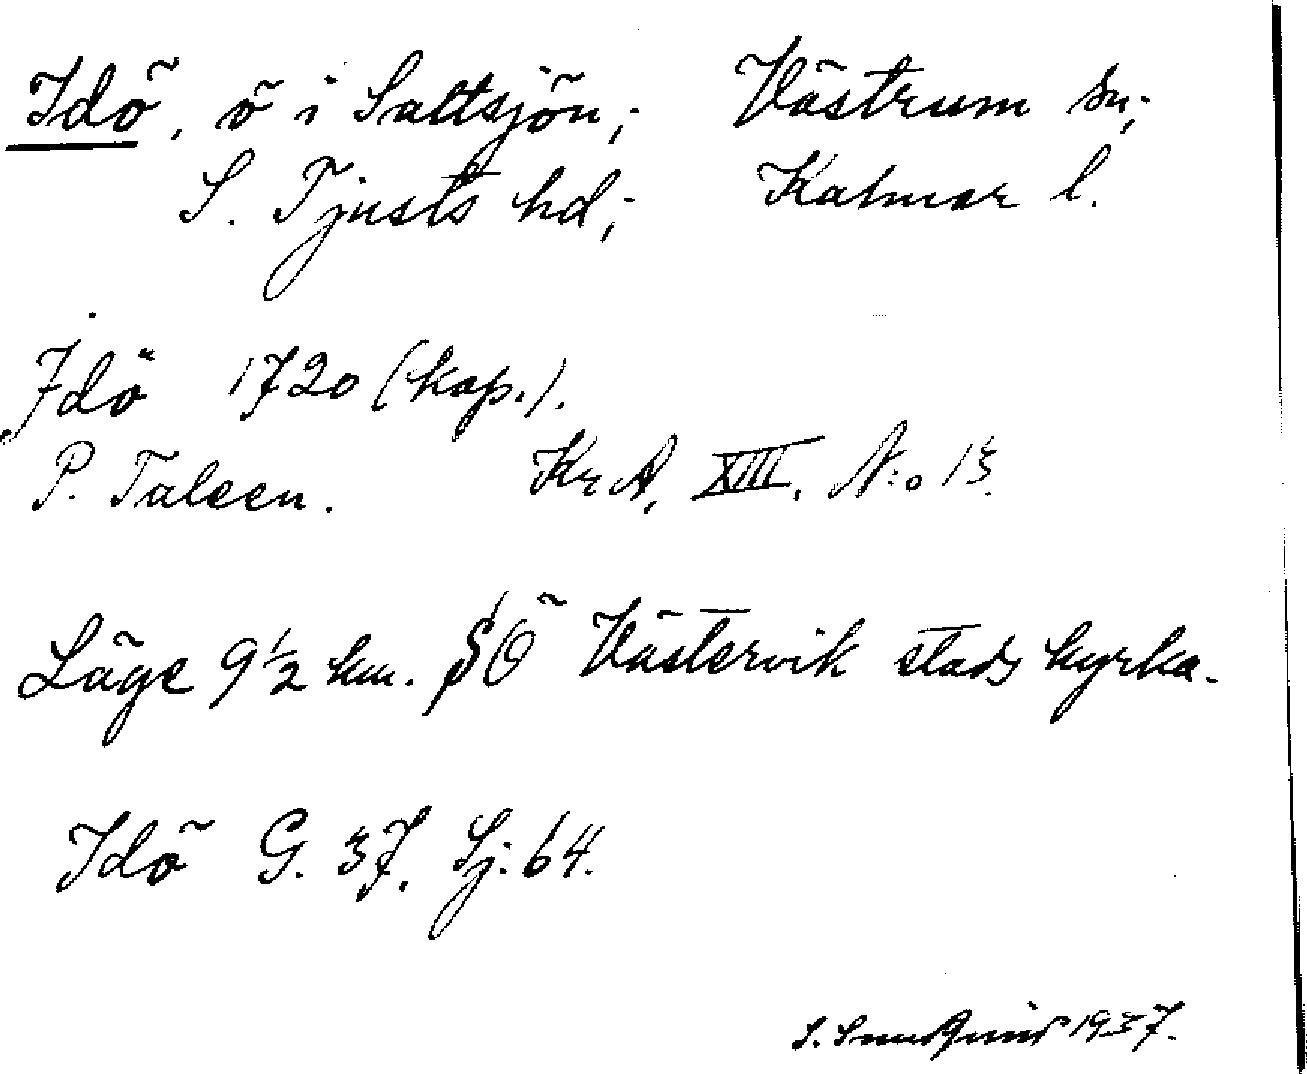 Idö, ö i Saltsjön; Västrum sn;
S. Tjusts hd; Kalmar l.
Idö 1720 (kop.).
P. Taleen. Kr A, XIII, N:o 13.
Läge 9½ km. SÖ Västervik stads kyrka.
Idö G. 37, Sj. 64.
S. 1937.